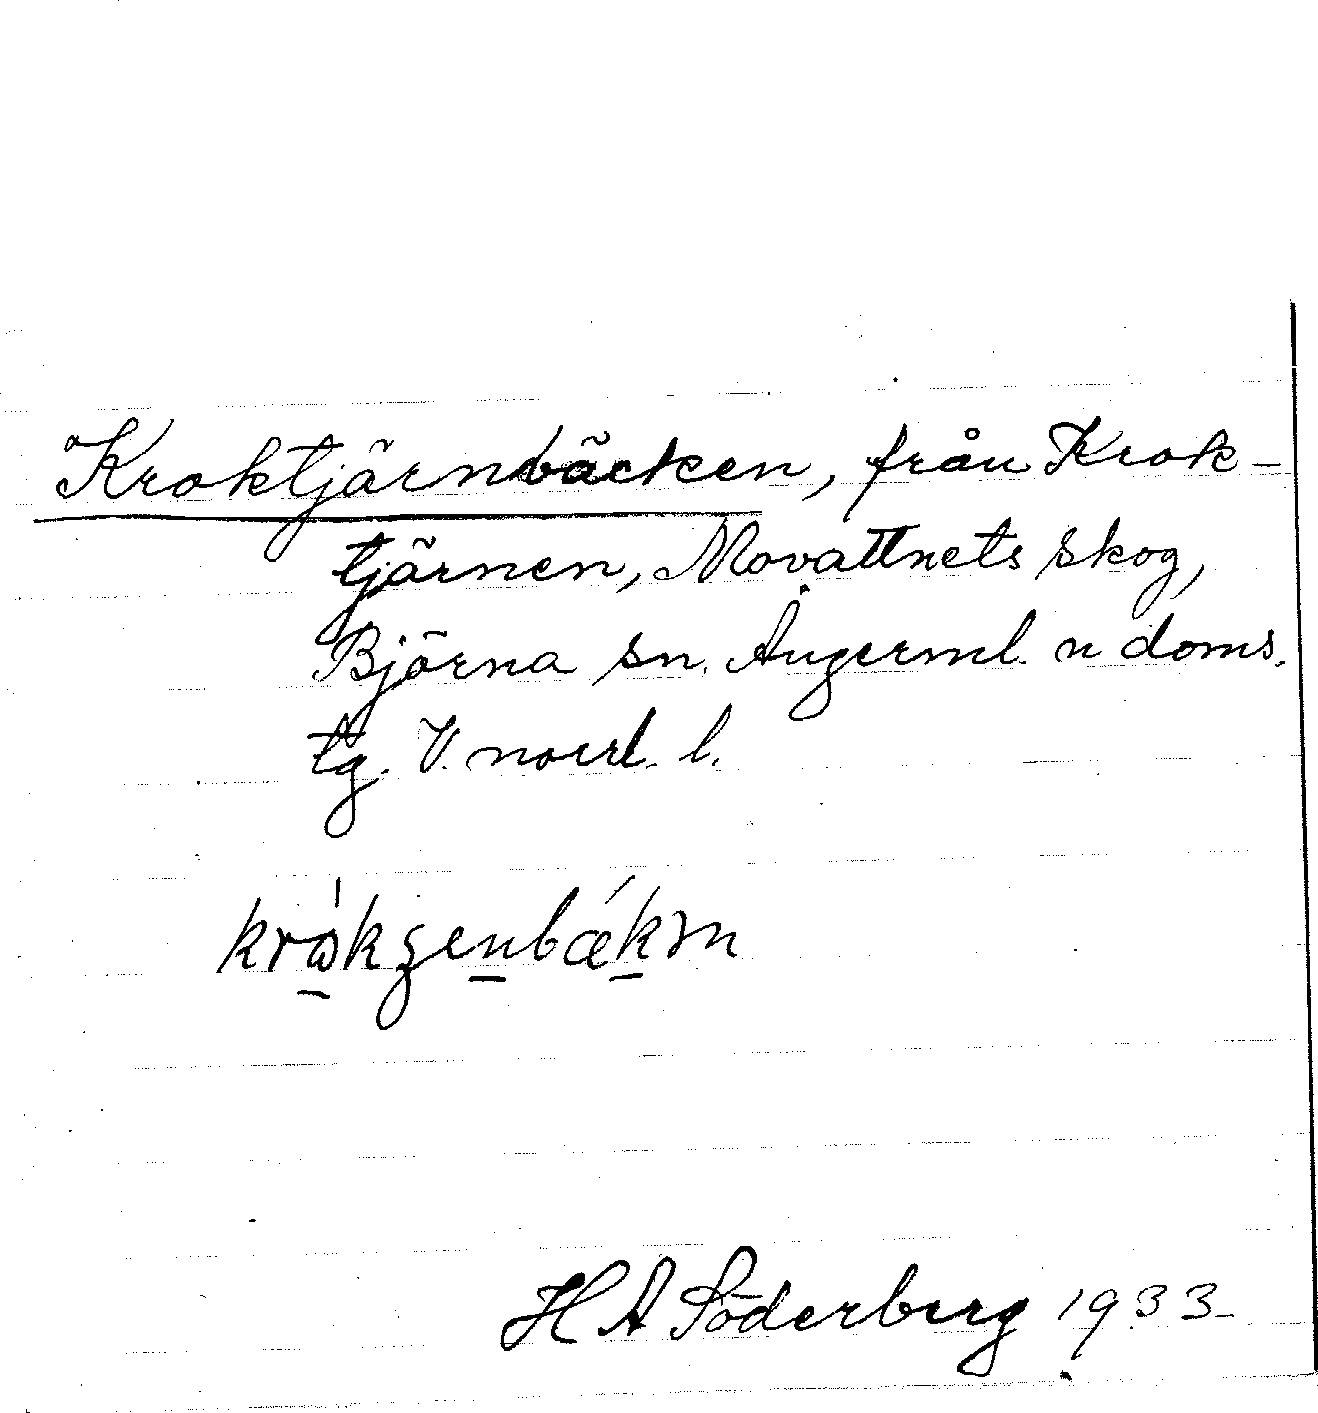 Kroktjärnbäcken, från Krok-
tjärnen, Movattnets skog,
Björna sn. Ångerml. n doms.
tg. V. norrl. l.
H A Söderberg 1933